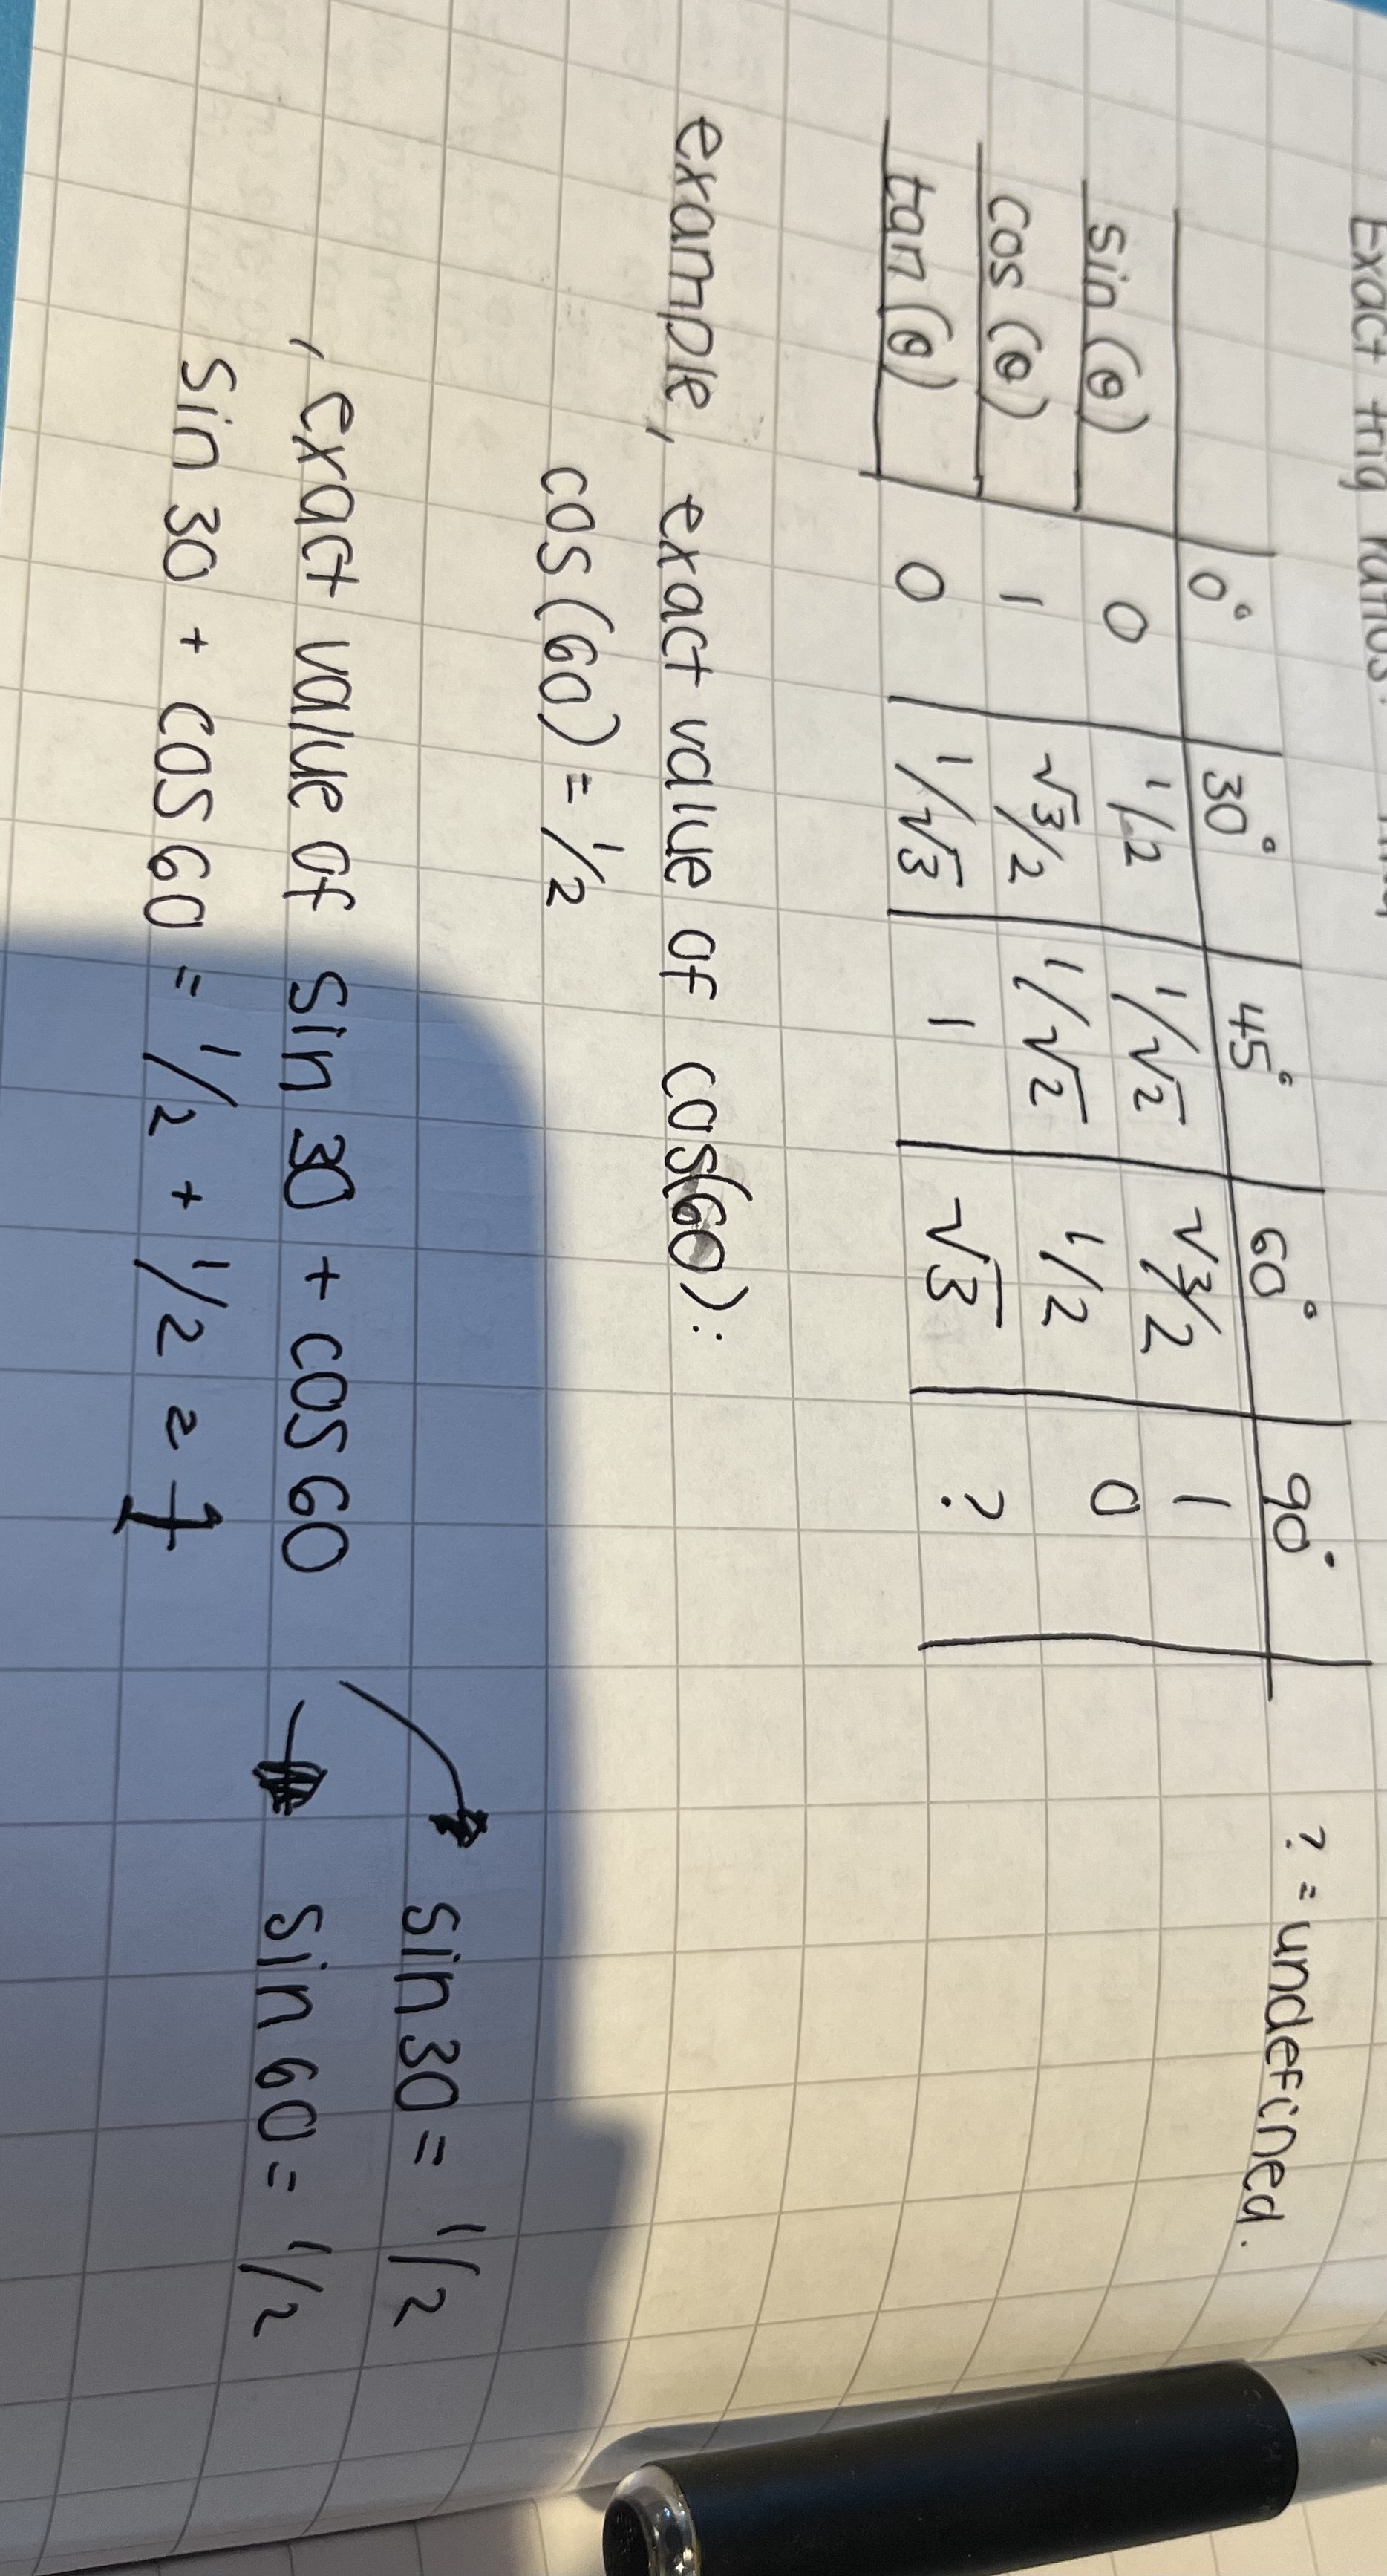 Exact trig ratios:
? = undefined.
0° 30° 45° 60° 90°
sin (θ) 0 1/2 1/√2 √3/2 1
cos (θ) 1 √3/2 1/√2 1/2 0
tan (θ) 0 1/√3 1 √3 ?
example, exact value of cos(60):
cos (60) = 1/2
, exact value of sin 30 + cos 60
sin 30 = 1/2
sin 60 = 1/2
sin 30 + cos 60 = 1/2 + 1/2 = 1